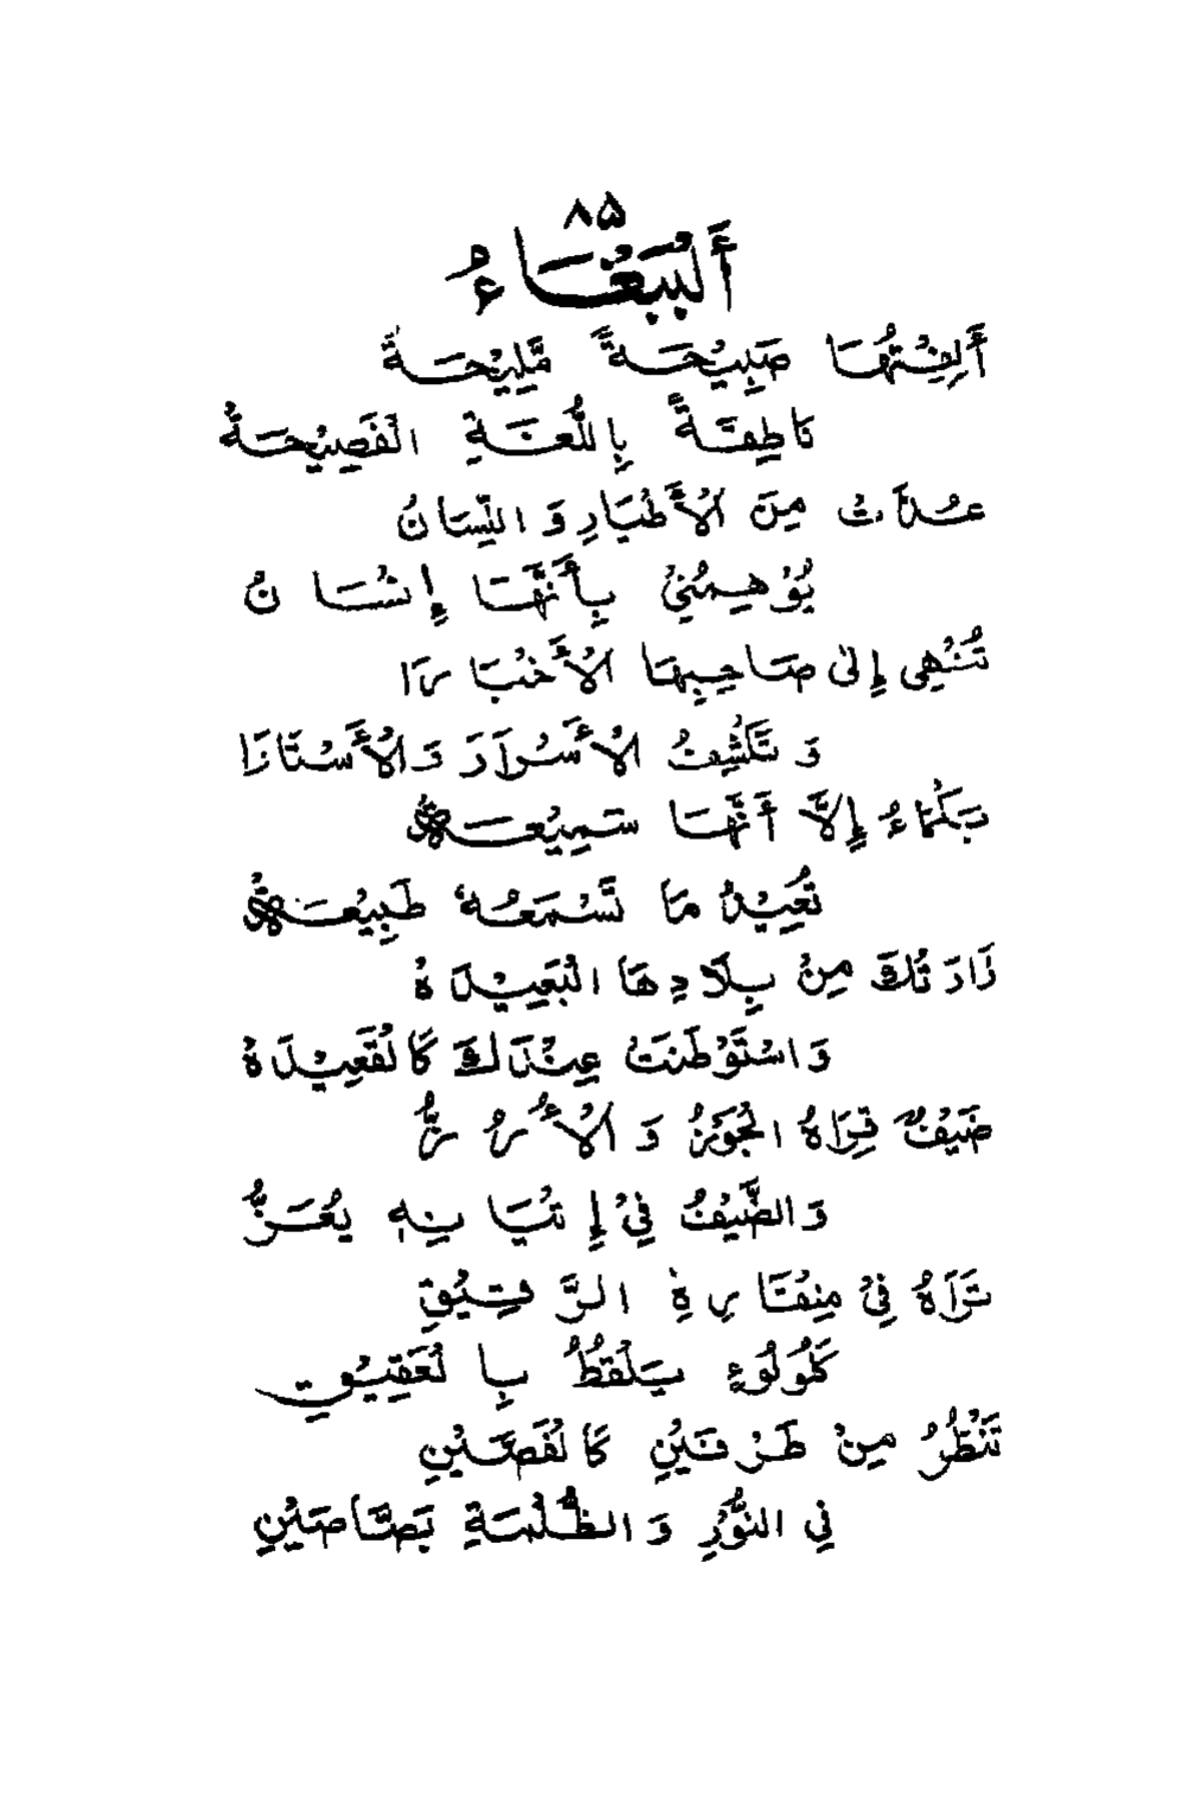 ۸۵
أَلْبَبْغَاءُ
أَلِفْتُهَا صَبِيْحَةً مَّلِيْحَةً
نَاطِقَةً بِاللُّغَةِ الْفَصِيْحَةْ
عُدَّتْ مِنَ الْأَطْيَارِ وَ اللِّسَانُ
يُوْهِمُنِيْ بِأَنَّهَا إِنْسَانُ
تُنْهِى إِلىٰ صَاحِبِهَا الْأَخْبَارَا
وَ تَكْشِفُ الْأَسْرَارَ وَ الْأَسْتَارَا
بَكْمَاءُ إِلَّا أَنَّهَا سَمِيْعَةٌ
تُعِيْدُ مَا تَسْمَعُهٗ طَبِيْعَةٌ
زَارَتْكَ مِنْ بِلَادِهَا الْبَعِيْدَهْ
وَ اسْتَوْطَنَتْ عِنْدَكَ كَالْقَعِيْدَهْ
ضَيْفٌ قِرَاهُ الْجَوْزُ وَ الْأُرُزُّ
وَ الضَّيْفُ فِيْ إِتْيَانِهٖ يُعَزُّ
تَرَاهُ فِيْ مِنْقَارِهَا الرَّقِيْقِ
كَلُوْلُوءٍ يَلْقُطُ بِالْعَقِيْقِ
تَنْظُرُ مِنْ طَرْفَيْنِ كَالْفَصَّيْنِ
فِي النُّوْرِ وَ الظُّلْمَةِ بَصَّاصَيْنِ